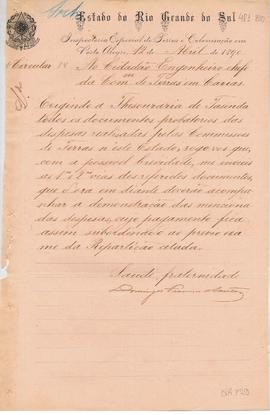 Estado do Rio Grande do Sul
Inspectoria Especial de Terras e Colonisação em
Porto Alegre, 12 de Abril de 1890.
Circular 18 Ao Cidadão Engenheiro Chefe
da Com. de Terras em Caxias
Exigindo a Thesouraria de Fazenda
todos os documentos probatorios das
despesas realisadas pelas Commissões
de Terras n'este Estado, rogo-vos que,
com a possivel brevidade, me envieis
as 1as e 2as vias dos referidos documentos,
que d'ora em diante deverão acompa-
nhar a demonstração das mencio-
nadas despesas, cujo pagamento fica
assim subordinado ao previo exa-
me da Repartição citada.
Saude e fraternidade